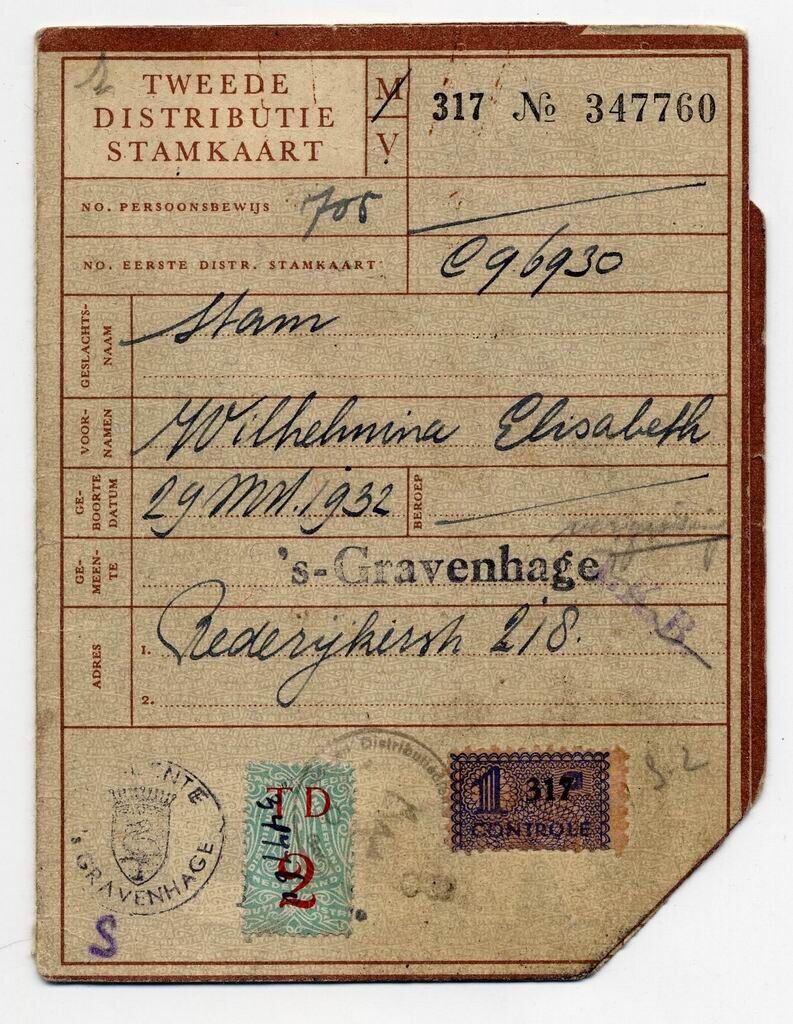 TWEEDE
DISTRIBUTIE
STAMKAART
M
V
317 № 347760
NO. PERSOONSBEWIJS 705
NO. EERSTE DISTR. STAMKAART C 96930
GESLACHTS-
NAAM
Stam
VOOR-
NAMEN
Wilhelmina Elisabeth
GE-
BOORTE
DATUM
29 Mrt. 1932
BEROEP
GE-
MEEN-
TE
's-Gravenhage
ADRES
1. Rederijkerstr 218.
2.
GEMEENTE
's GRAVENHAGE
TD
2
1 317
CONTROLE
S.2
S